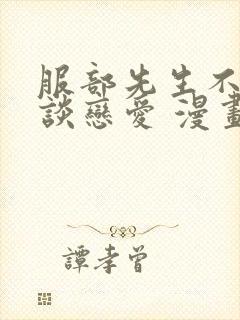 服部先生不
談戀愛 漫畫
譚孝曾